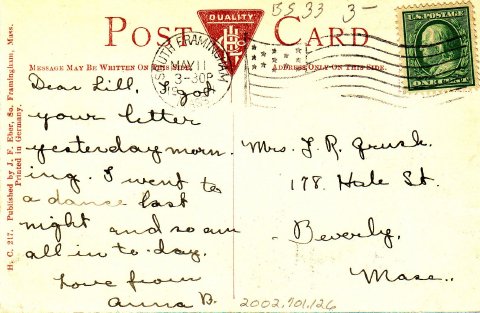 BS 33 3-
POST CARD
QUALITY
MESSAGE MAY BE WRITTEN ON THIS SIDE
ADDRESS ONLY ON THIS SIDE.
SOUTH FRAMINGHAM
MAY 11
3-30P
MASS.
U.S. POSTAGE
ONE CENT
H. C. 217. Published by J. F. Eber, So. Framingham, Mass.
Printed in Germany.
Dear Lill, I got
your letter
yesterday morn
ing. I went to
a dance last
night and so am
all in to-day.
Love from
Anna B.
Mrs. J. R. Grush.
178 Hale St.
Beverly,
Mass..
2002.701.126